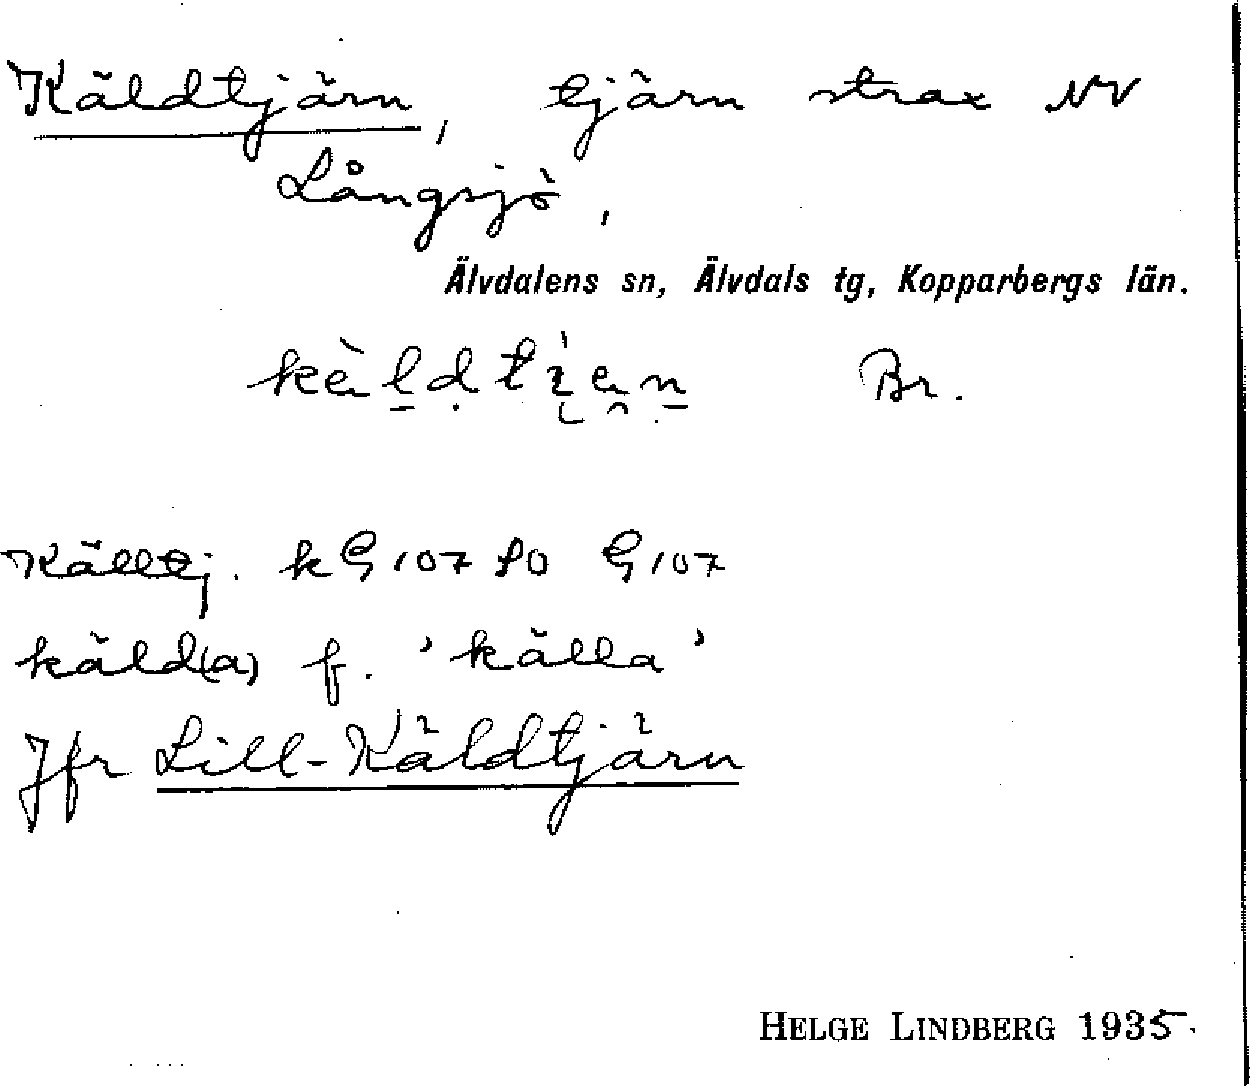 Käldtjärn, tjärn strax NV
Långsjö,
Älvdalens sn, Älvdals tg, Kopparbergs län.
Br.
Källtj. k G 107 SO G 107
käld(a) f. 'källa'
Jfr Lill-Käldtjärn
HELGE LINDBERG 1935.